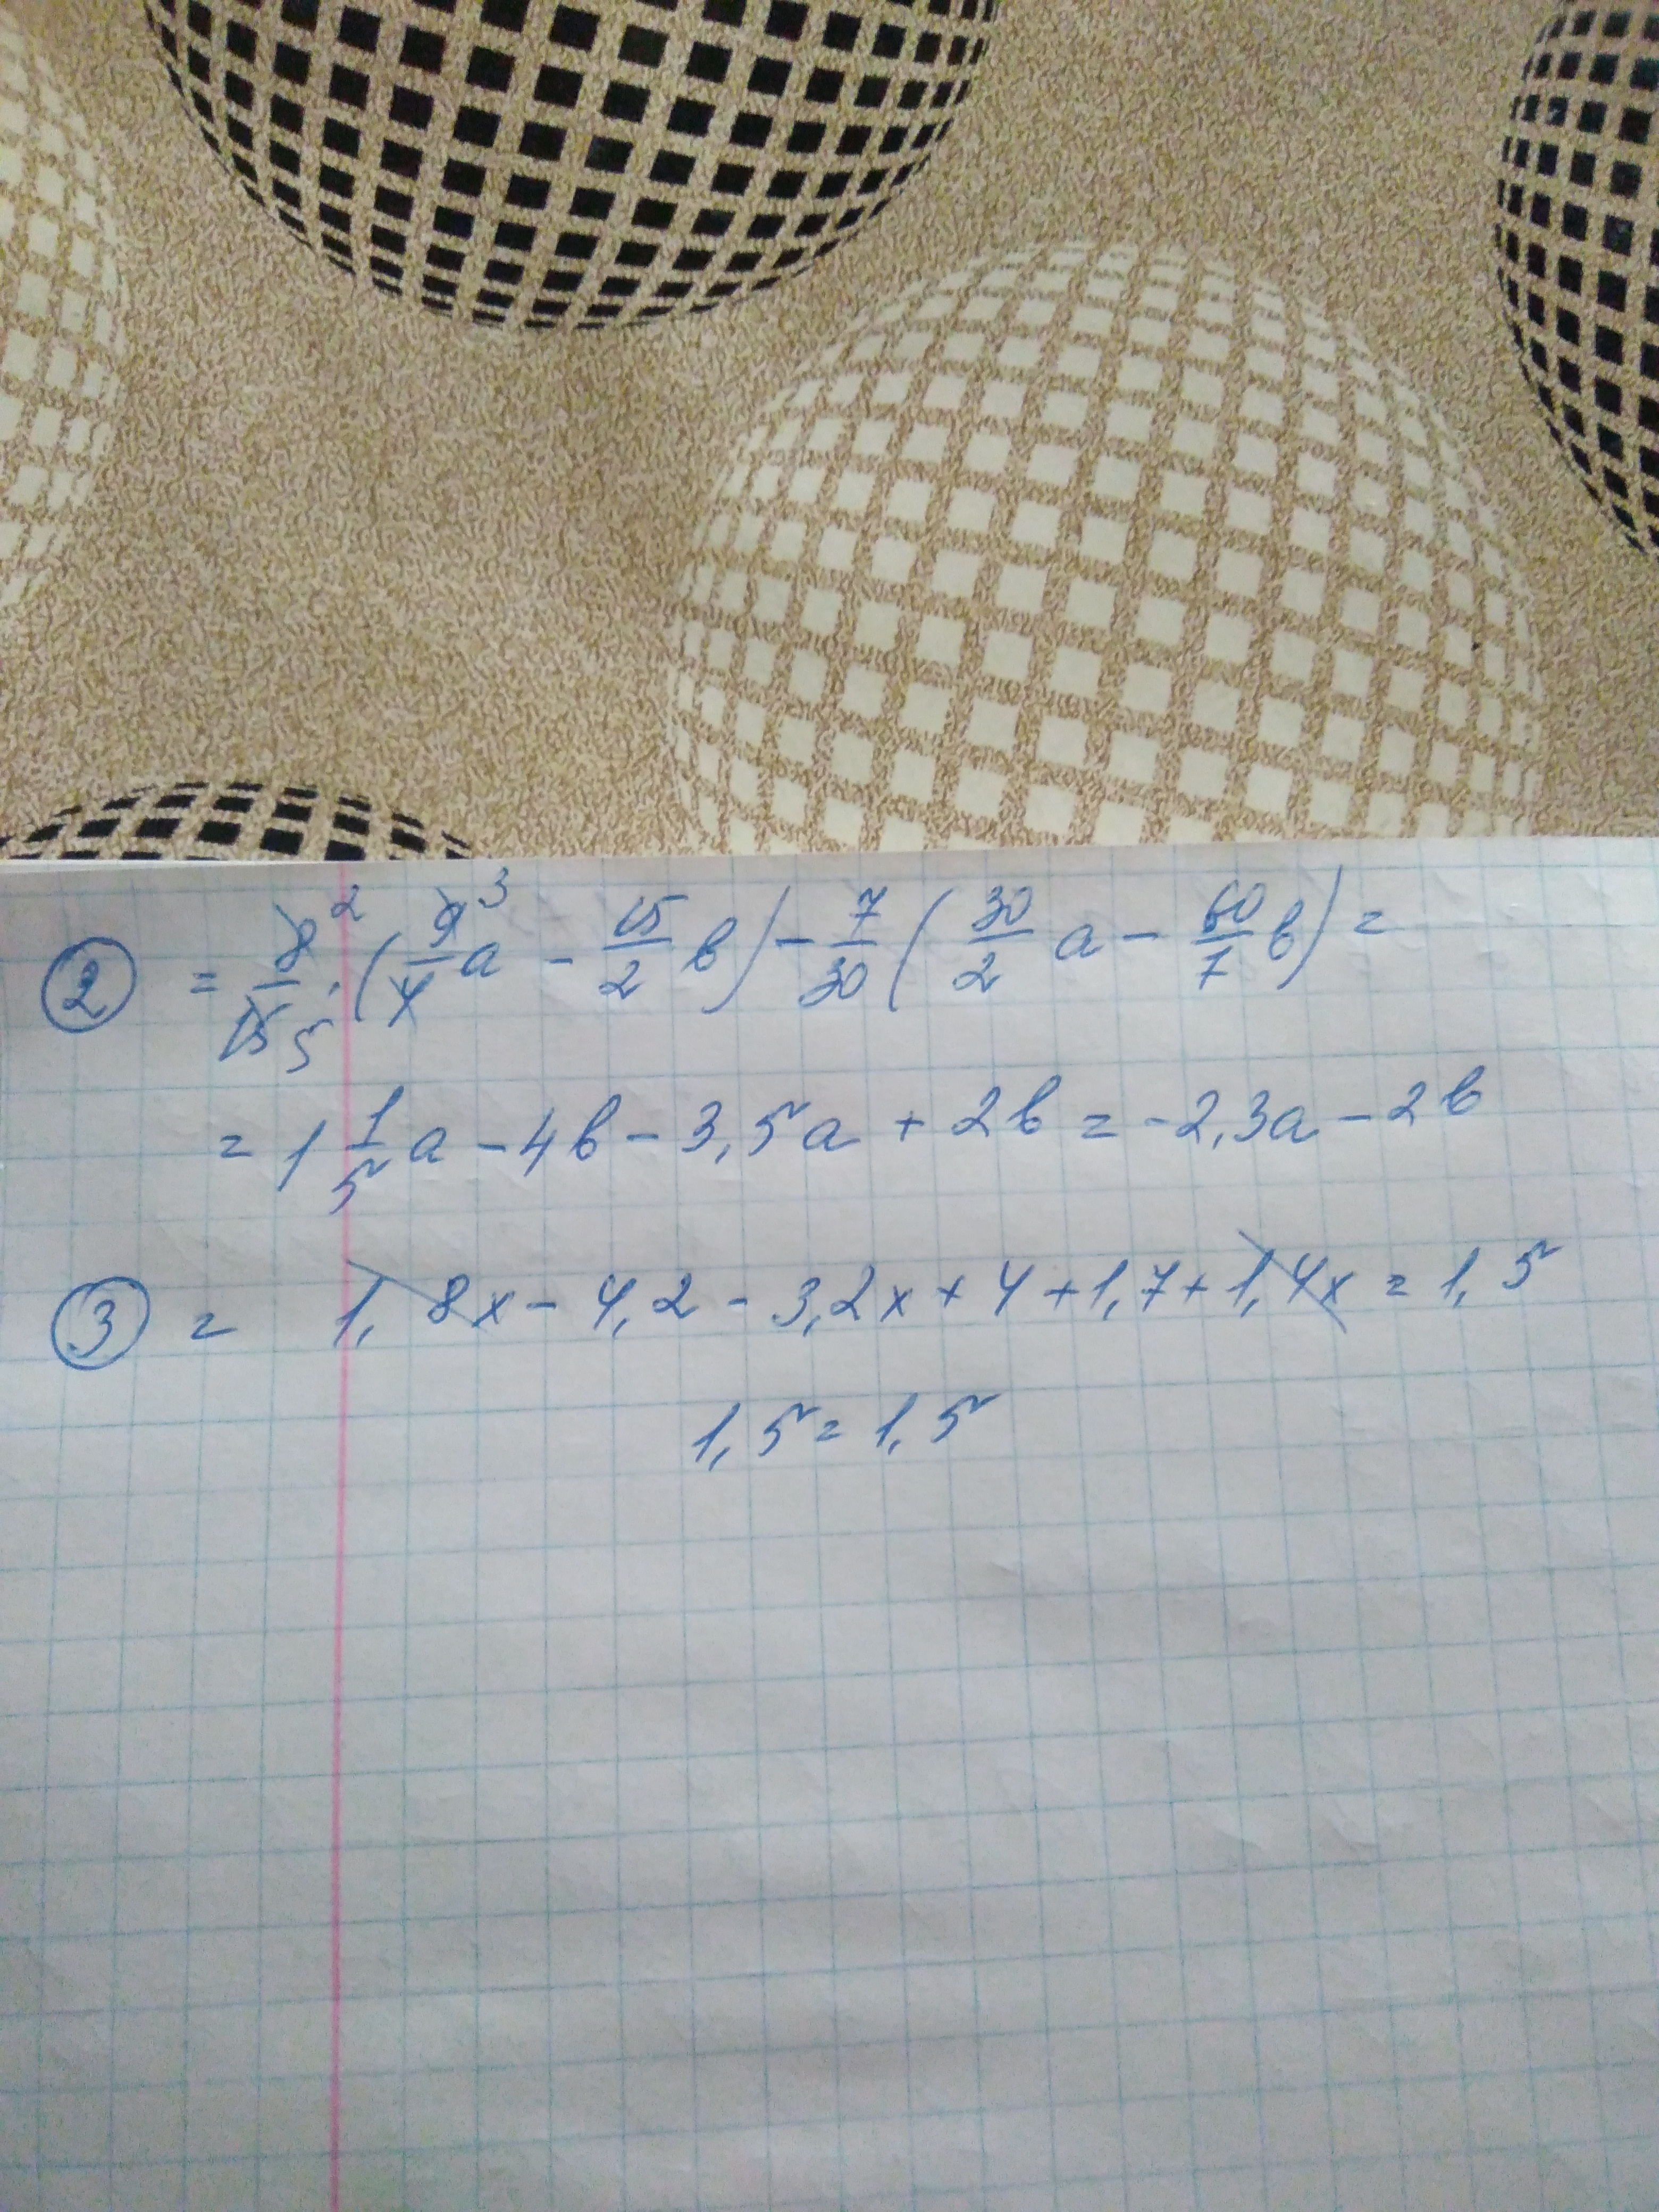 ② = 8/15 2 5 · (9/4 3 a - 15/2 в) - 7/30 (30/2 a - 60/7 в) =
= 1 1/5 a - 4в - 3,5a + 2в = -2,3a - 2в
③ = 1,8x - 4,2 - 3,2x + 4 + 1,7 + 1,4x = 1,5
1,5 = 1,5